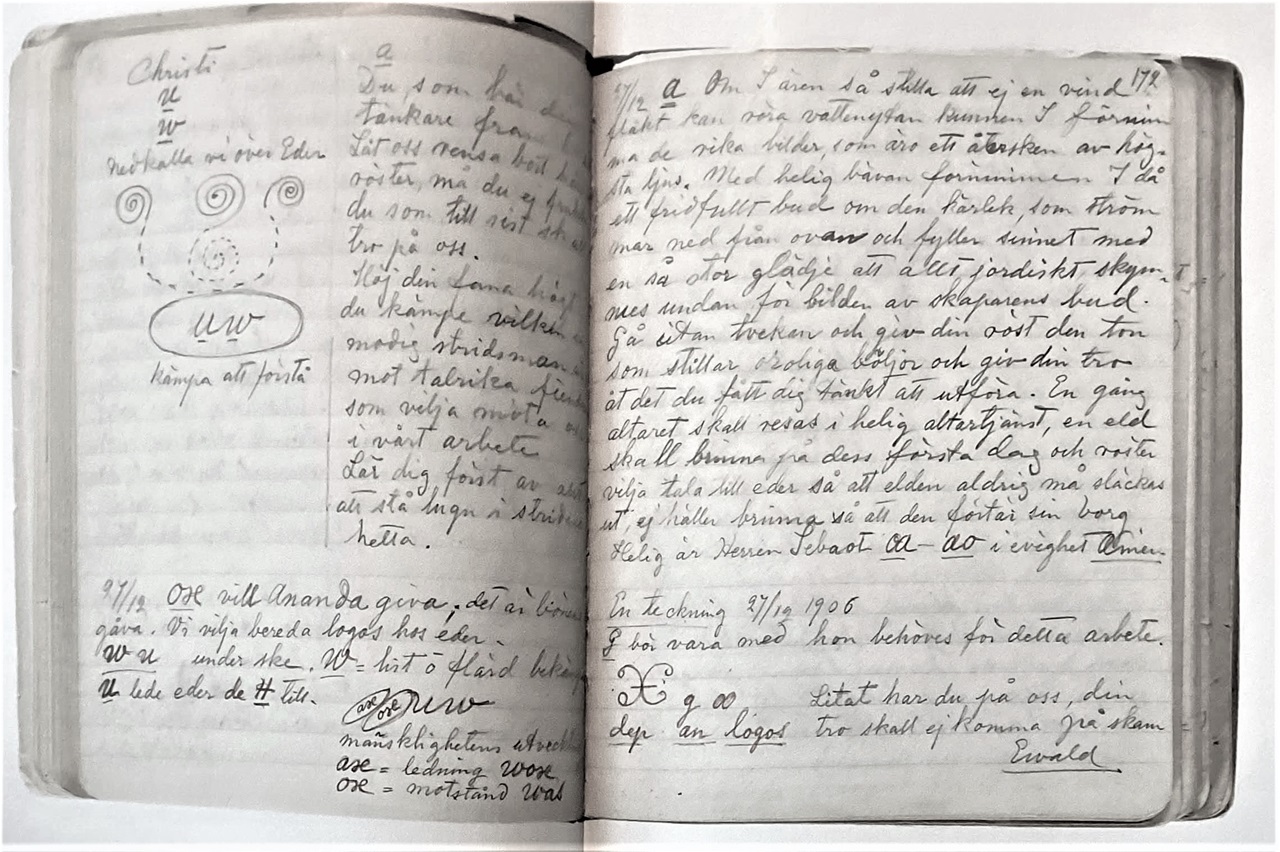 Christi
u
w
nedkalla vi över Eder
uw
kämpa att förstå
a
Du, som här
tänkare fram
Låt oss rensa bort
röster, må du ej
du som till sist
tro på oss.
Höj din fana högt
du kämpe vilken
modig stridsman
mot talrika
som vilja möta
i vårt arbete
Lär dig först av allt
att stå lugn i stridens
hetta.
27/12 ose vill Ananda giva, det är
gåva. Vi vilja bereda logos hos eder.
w u under ske. W = list o flärd
u lede eder de H till.
ase ose uw
mänsklighetens
ase = ledning wose
ose = motstånd was
172
27/12 a Om I ären så stilla att ej en vind
fläkt kan röra vattenytan kunnen I förnim
ma de rika bilder, som äro ett återsken av hög-
sta ljus. Med helig bävan förnimmen I då
ett fridfullt bud om den kärlek, som ström
mar ned från ovan och fyller sinnet med
en så stor glädje att allt jordiskt skym-
mes undan för bilden av skaparens bud.
Gå utan tvekan och giv din röst den ton
som stillar oroliga böljor och giv din tro
åt det du fått dig tänkt att utföra. En gång
altaret skall resas i helig altartjänst, en eld
skall brinna på dess första dag och röster
vilja tala till eder så att elden aldrig må släckas
ut, ej häller brinna så att den förtär sin borg
Helig är Herren Sebaot oa - ao i evighet Amen
En teckning 27/12 1906
G bör vara med hon behöves för detta arbete.
X g oo Litat har du på oss, din
dep an logos tro skall ej komma på skam
Ewald